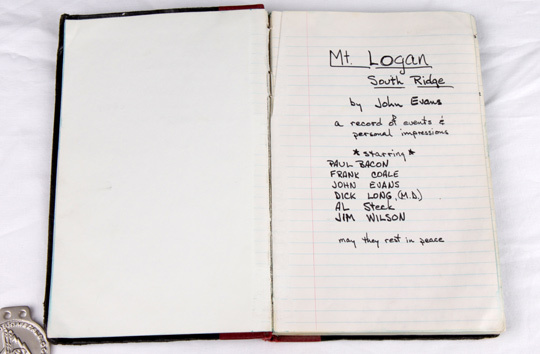 Mt. Logan
South Ridge
by John Evans
a record of events &
personal impressions
*starring*
PAUL BACON
FRANK COALE
JOHN EVANS
DICK LONG, (M.D.)
AL Steck
JIM WILSON
may they rest in peace